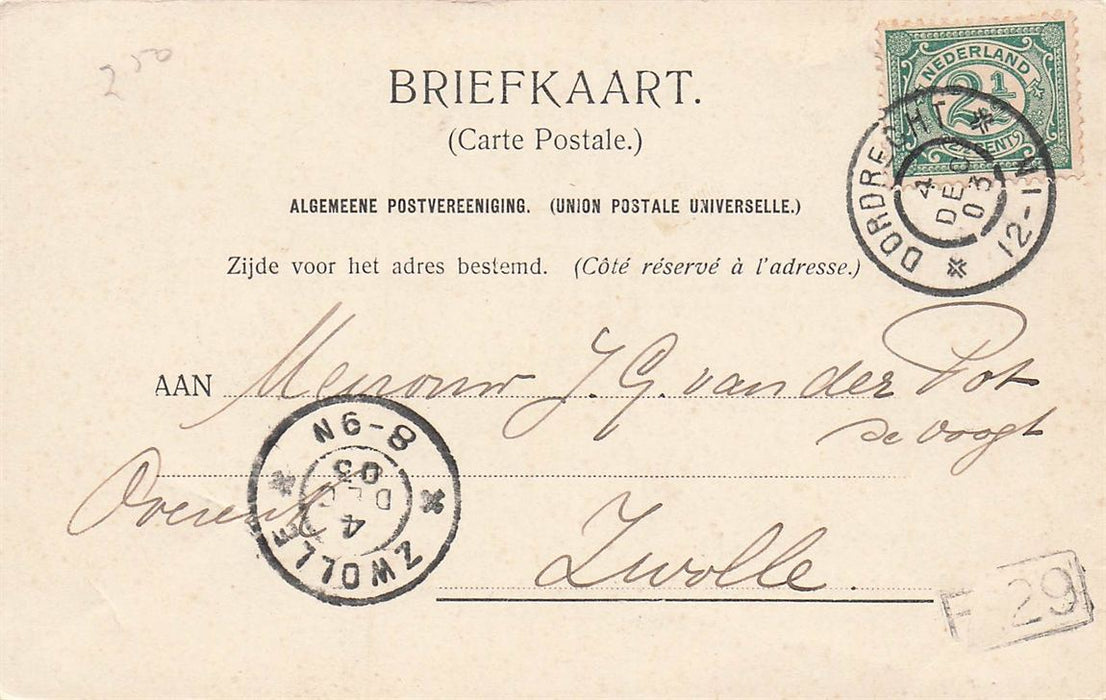 2 50
BRIEFKAART.
(Carte Postale.)
NEDERLAND
2½
DORDRECHT
4 DEC 03
12-1N
ALGEMEENE POSTVEREENIGING. (UNION POSTALE UNIVERSELLE.)
Zijde voor het adres bestemd. (Côté réservé à l'adresse.)
AAN Mevrouw J. G. van der Pot
de Voogt
8-9N
4 DEC 03
ZWOLLE
Zwolle.
F 29